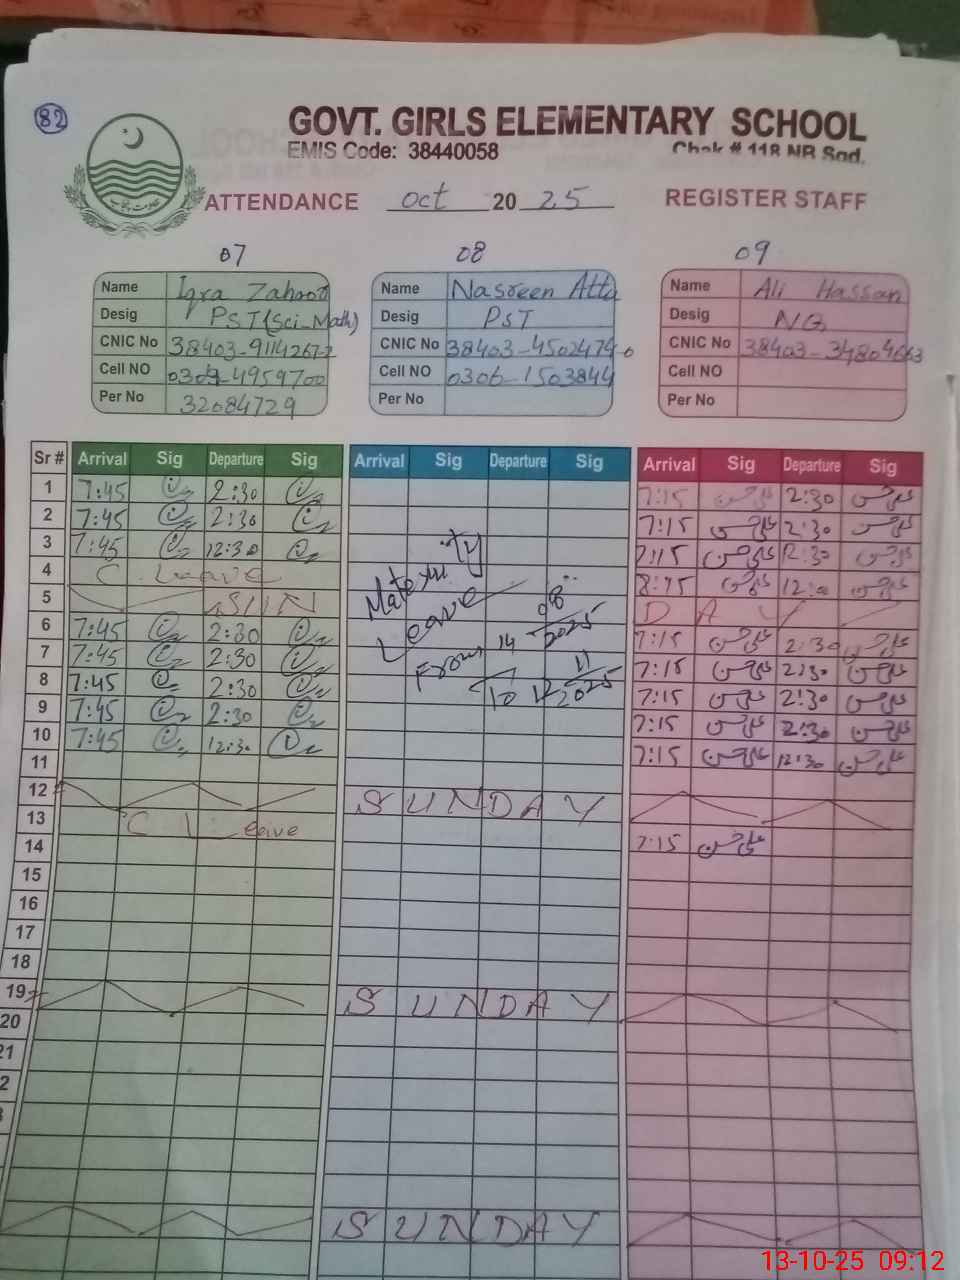 82
GOVT. GIRLS ELEMENTARY SCHOOL
EMIS Code: 38440058 Chak # 118 NB Sgd.
ATTENDANCE Oct 2025 REGISTER STAFF
07 08 09
Name Iqra Zahoor Name Nasreen Atta Name Ali Hassan
Desig PST(Sci-Math) Desig PST Desig NQ
CNIC No 38403-9114267-2 CNIC No 38403-4502479-0 CNIC No 38403-34804663
Cell NO 0303-4959700 Cell NO 0306-1503844 Cell NO
Per No 32084729 Per No Per No
Sr # Arrival Sig Departure Sig Arrival Sig Departure Sig Arrival Sig Departure Sig
1 7:45 2:30 7:15 علی حسن 2:30 علی حسن
2 7:45 2:30 7:15 علی حسن 2:30 علی حسن
3 7:45 12:30 7:15 علی حسن 12:30 علی حسن
4 C. Leave علی حسن 12:00 علی حسن
5 SUN DAY
6 7:45 2:30 7:15 علی حسن 2:30 علی حسن
7 7:45 2:30 7:15 علی حسن 2:30 علی حسن
8 7:45 2:30 7:15 علی حسن 2:30 علی حسن
9 7:45 2:30 7:15 علی حسن 2:30 علی حسن
10 7:45 12:30 7:15 علی حسن 12:30 علی حسن
Maternity
Leave
From 14 08 2025
To 12 11 2025
11
12 SUNDAY
13 C Leave
14 7:15 علی حسن
15
16
17
18
19 SUNDAY
20
21
2
3
SUNDAY
13-10-25 09:12